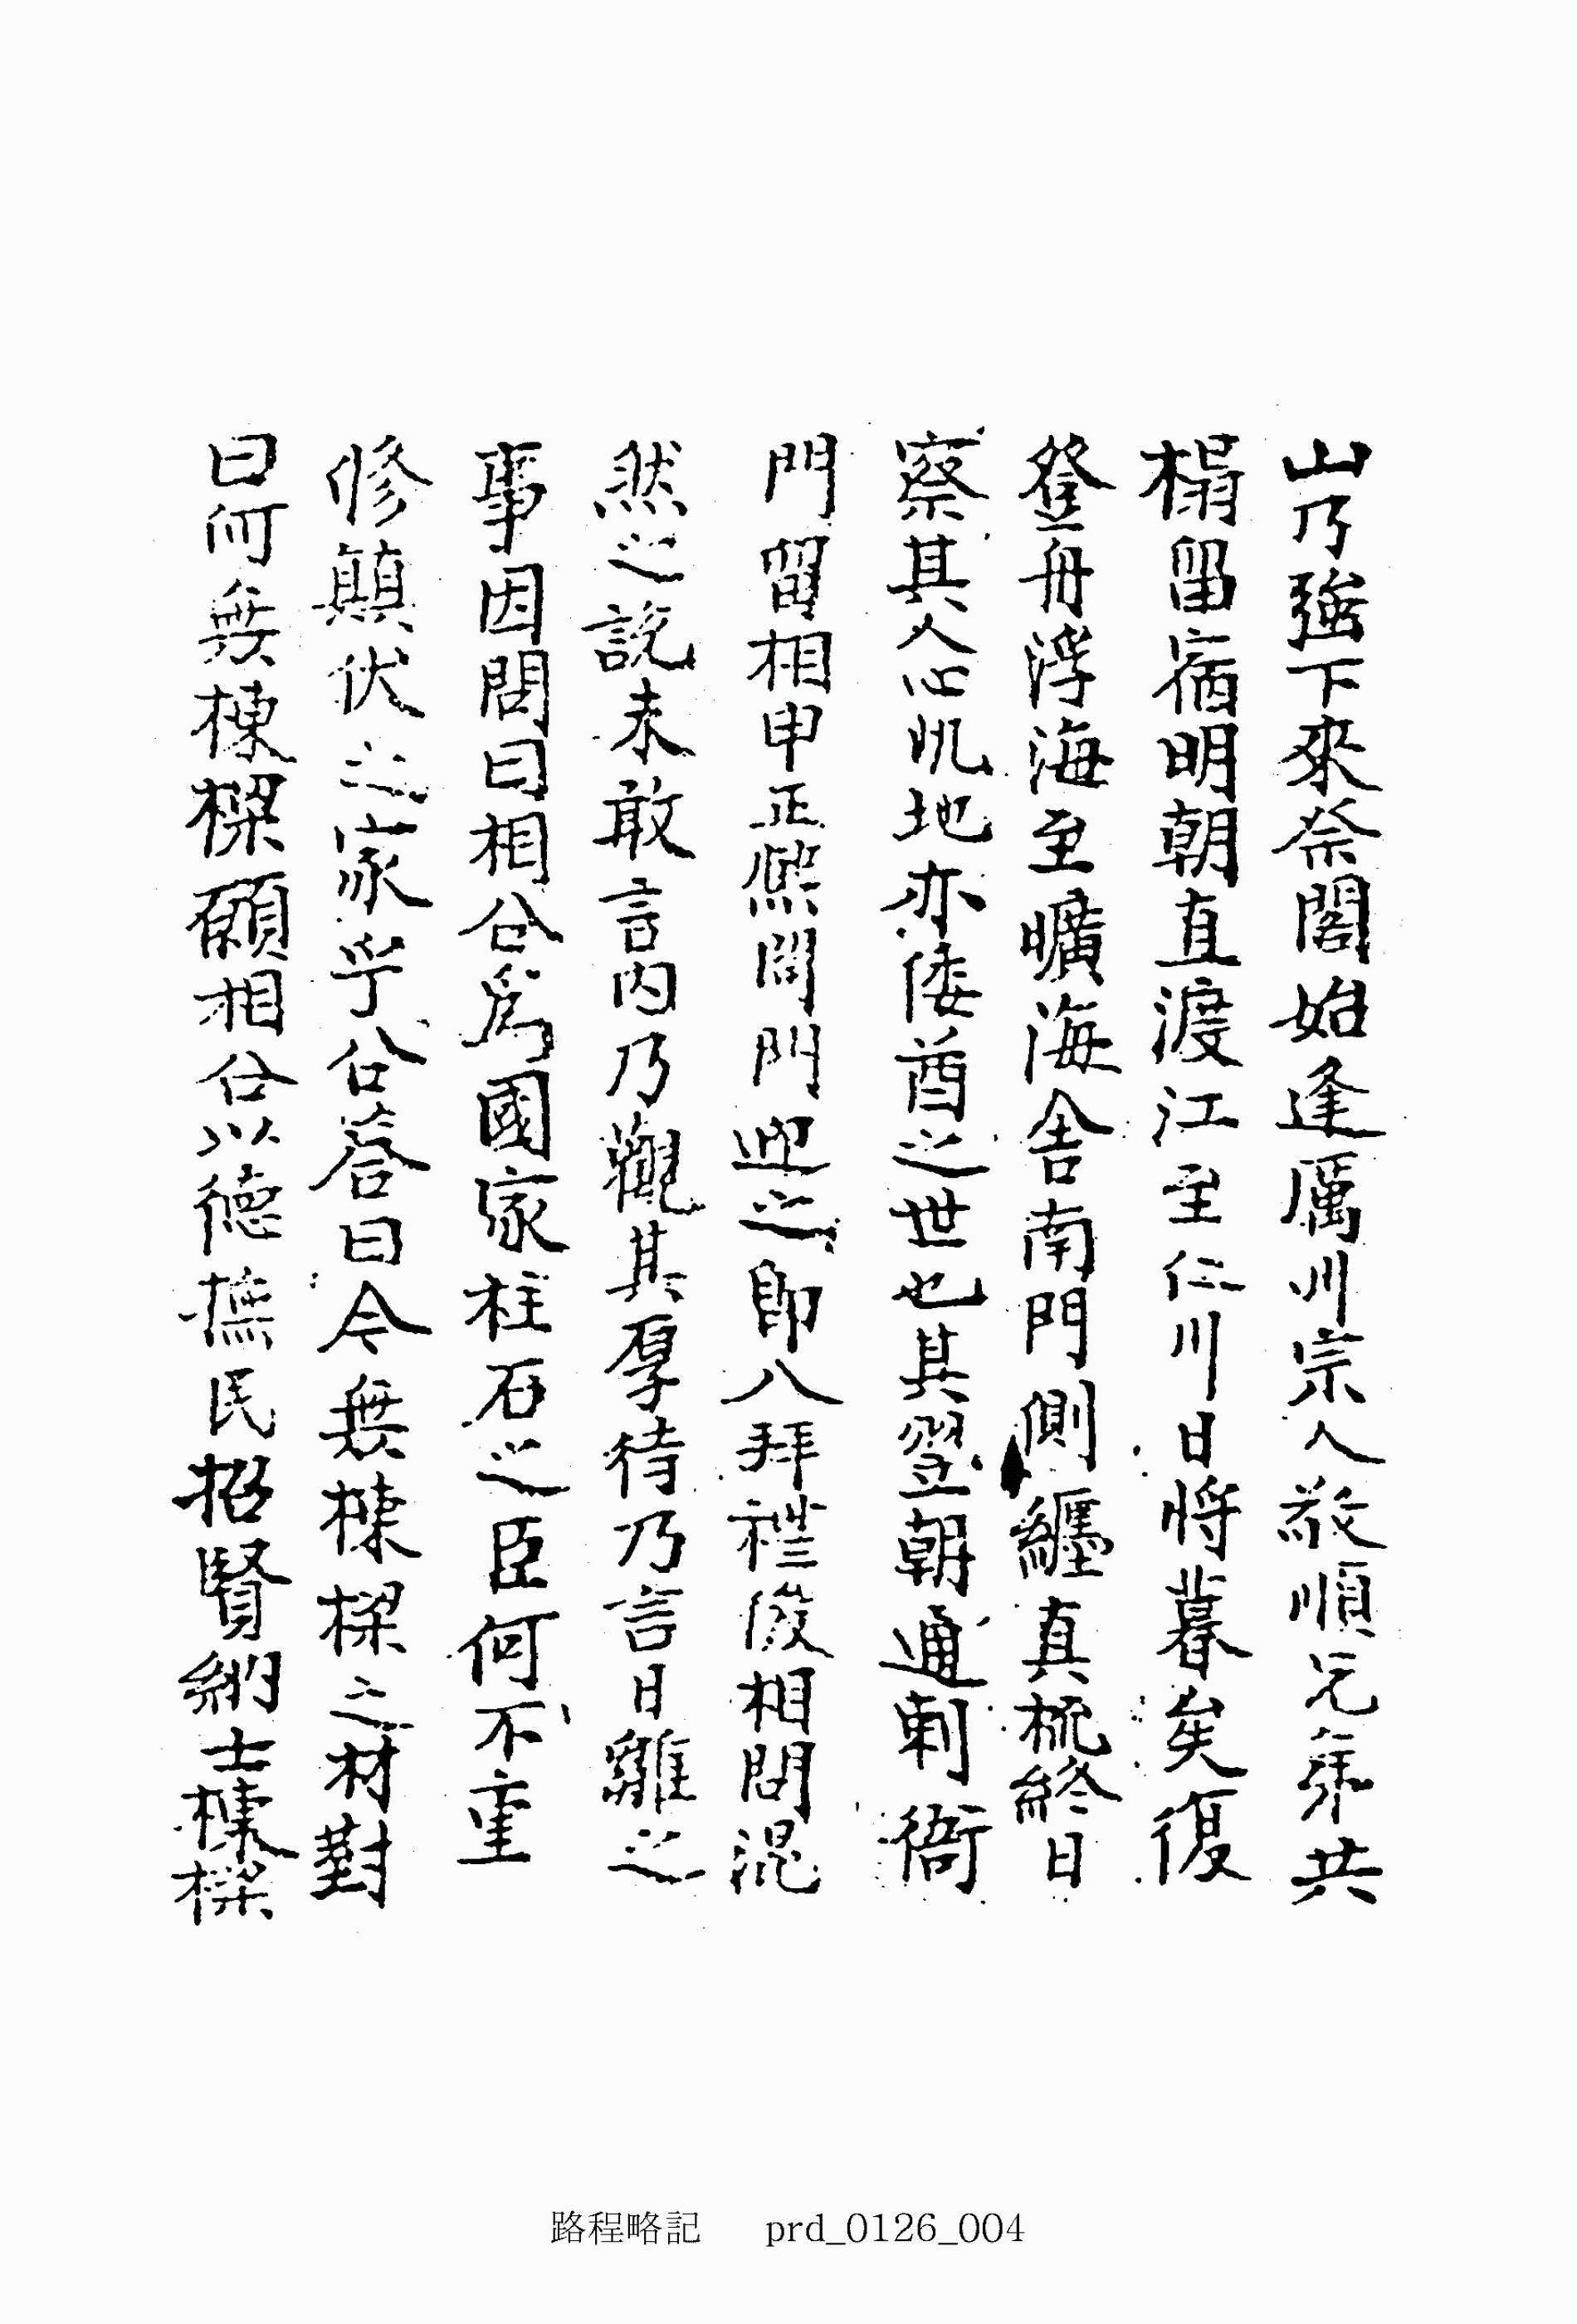 山乃強下來祭閣始逢厲州宗人敬順元年共
榻留宿明朝直渡江至仁川日將暮矣復
登舟浮海至曠海舍南門側纏真梳終日
察其人心風地亦倭酋之世也其翌朝通刺衙
門留相申正熙開門迎之即入拜禮後相問混
然之說未敢言內乃觀其厚待乃言日難之
事因問曰相公爲國家柱石之臣何不重
修顛伏之家乎公答曰今無棟樑之材對
曰何無棟樑願相公以德撫民招賢納士棟樑
路程略記 prd_0126_004